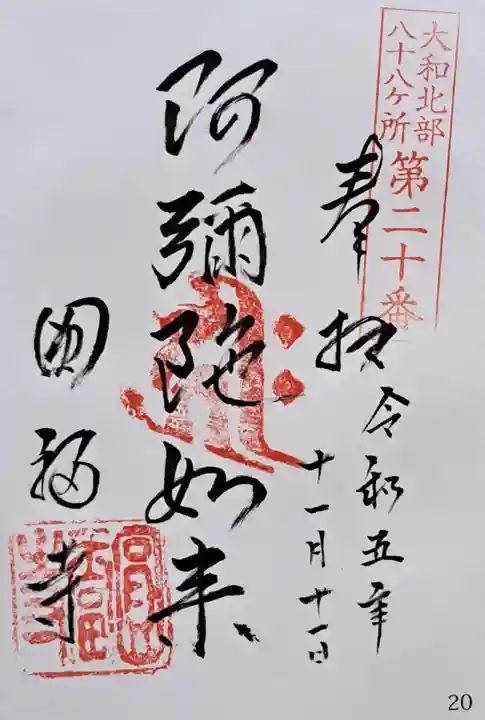 大和北部
八十八ケ所第二十番
奉拝
令和五年
十一月十一日
阿彌陀如来
圓福寺
20